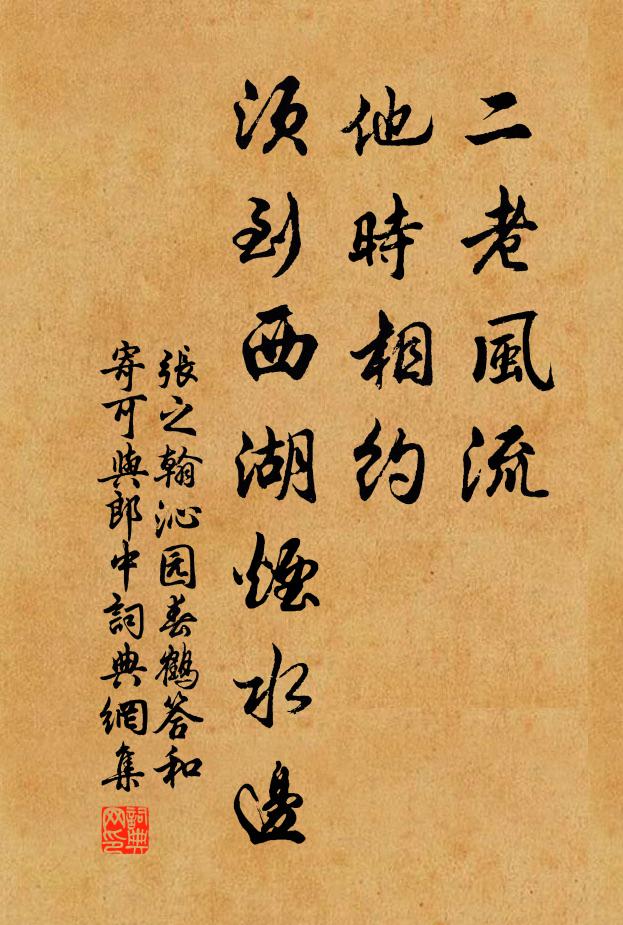 二老風流
他時相約
須到西湖煙水邊
張之翰沁园春鶴答和
寄可與郎中詞典網集
詞典
网印